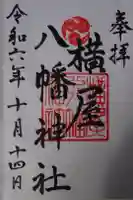 奉拝
横屋
八幡神社
令和六年十月十四日